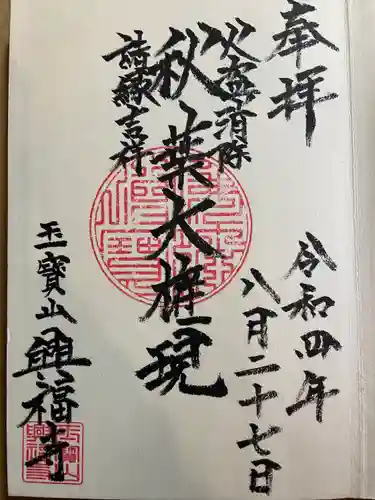 奉拝
令和四年
八月二十七日
火盗消除
秋葉大権現
諸縁吉祥
玉寶山興福寺